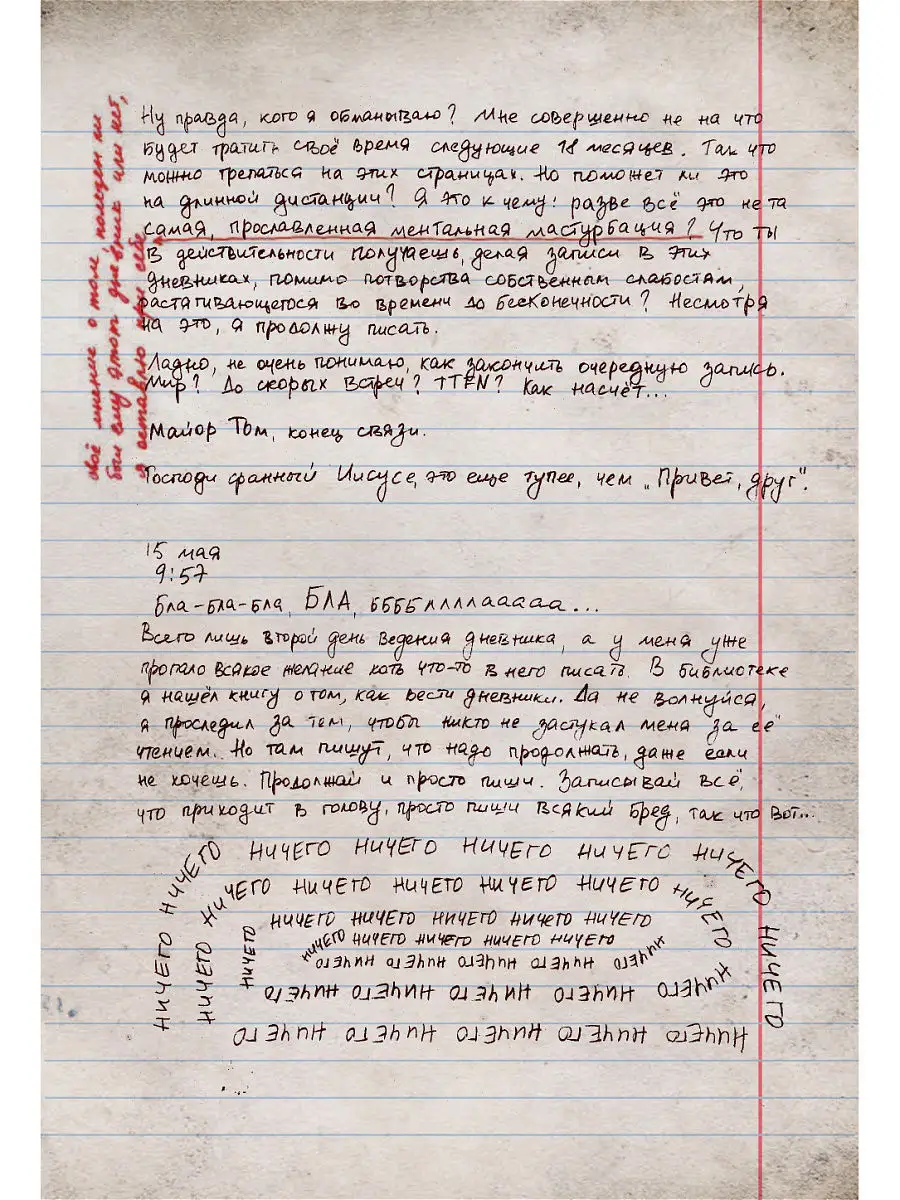 Ну правда, кого я обманываю? Мне совершенно не на что
будет тратить своё время следующие 18 месяцев. Так что
можно трепаться на этих страницах. Но поможет ли это
на длинной дистанции? Я это к чему: разве всё это не та
самая, прославленная ментальная мастурбация? Что ты
в действительности получаешь, делая записи в этих
дневниках, помимо потворства собственным слабостям,
растягивающегося во времени до бесконечности? Несмотря
на это, я продолжу писать.
Ладно, не очень понимаю, как закончить очередную запись.
Мир? До скорых встреч? TTFN? Как насчёт...
Майор Том, конец связи.
Господи сранный Иисусе, это еще тупее, чем „Привет, друг“.
своё мнение о том, полезен ли
был ему этот дневник или нет,
я оставлю при себе
15 мая
9:57
Бла-бла-бла, БЛА, ббббллллааааа...
Всего лишь второй день ведения дневника, а у меня уже
пропало всякое желание хоть что-то в него писать. В библиотеке
я нашёл книгу о том, как вести дневники. Да не волнуйся,
я проследил за тем, чтобы никто не застукал меня за её
чтением. Но там пишут, что надо продолжать, даже если
не хочешь. Продолжай и просто пиши. Записывай всё,
что приходит в голову, просто пиши всякий бред, так что вот...
НИЧЕГО НИЧЕГО НИЧЕГО НИЧЕГО НИЧЕГО НИЧЕГО НИЧЕГО НИЧЕГО
НИЧЕГО НИЧЕГО НИЧЕГО НИЧЕГО НИЧЕГО НИЧЕГО НИЧЕГО НИЧЕГО
НИЧЕГО НИЧЕГО НИЧЕГО НИЧЕГО НИЧЕГО НИЧЕГО
НИЧЕГО НИЧЕГО НИЧЕГО НИЧЕГО НИЧЕГО
НИЧЕГО НИЧЕГО НИЧЕГО НИЧЕГО НИЧЕГО
НИЧЕГО НИЧЕГО НИЧЕГО НИЧЕГО НИЧЕГО
НИЧЕГО НИЧЕГО НИЧЕГО НИЧЕГО НИЧЕГО НИЧЕГО